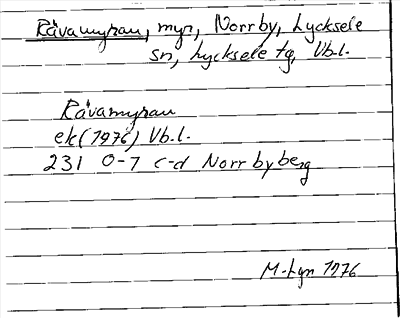 Råvamyran, myr, Norrby, Lycksele
sn, Lycksele tg, Vb.l.
Råvamyran
ek (1976) Vb.l.
231 0-7 c-d Norrbyberg
1976